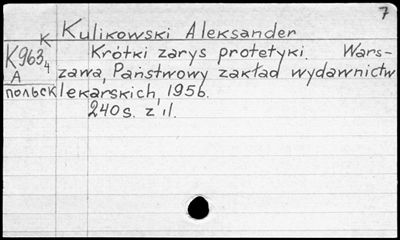 7
K Kulikowski Aleksander
K963,4 Krótki zarys protetyki. Wars-
A zawa, Państwowy zakład wydawnictw
польск lekarskich, 1956.
240 s. z il.